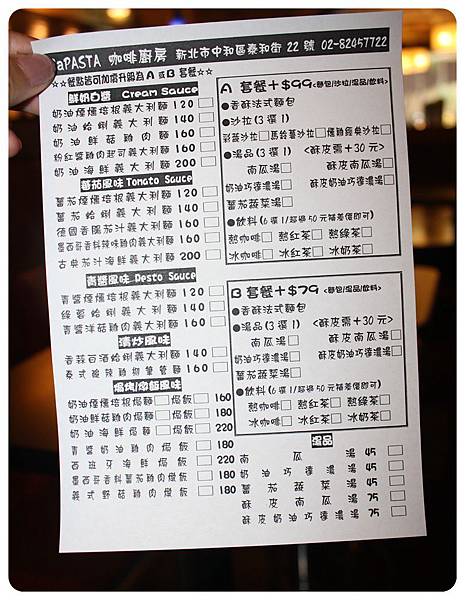 aPASTA 咖啡廚房 新北市中和區泰和街 22 號 02-82457722
☆☆餐點皆可加價升級為 A 或 B 套餐☆☆
鮮奶白醬 Cream Sauce
奶油燻燻培根義大利麵 120
奶油蛤蜊義大利麵 140
奶油鮮菇雞肉麵 160
粉紅醬雞肉起司義大利麵 160
奶油海鮮義大利麵 200
蕃茄風味 Tomato Sauce
蕃茄燻燻培根義大利麵 120
蕃茄蛤蜊義大利麵 140
德國香腸茄汁義大利麵 160
墨西哥香料辣味雞肉義大利麵 160
古典茄汁海鮮義大利麵 200
青醬風味 Pesto Sauce
青醬燻燻培根義大利麵 120
綠蓤蛤蜊義大利麵 140
青醬洋菇雞肉義大利麵 160
清炒風味
香蒜白酒蛤蜊義大利麵 140
泰式酸辣雞柳筆管麵 160
焗烤/燉飯風味
奶油燻燻培根焗麵 焗飯 160
奶油鮮菇雞肉焗麵 焗飯 180
奶油海鮮焗麵 焗飯 220
青醬奶油雞肉焗飯 180
西班牙海鮮焗飯 220
墨西哥香料蕃茄雞肉燉飯 180
義式野菇雞肉燉飯 180
A 套餐+$99<麵包/沙拉/湯品/飲料>
●香酥法式麵包
●沙拉(3 選 1)
和蔬沙拉 馬鈴薯沙拉 凱薩經典沙拉
●湯品(3 選 1) <酥皮需+30 元>
南瓜湯 酥皮南瓜湯
奶油巧達濃湯 酥皮奶油巧達濃湯
蕃茄蔬菜湯
●飲料(6 選 1/超過 50 元補差價即可)
熱咖啡 熱紅茶 熱綠茶
冰咖啡 冰紅茶 冰奶茶
B 套餐+$79 <麵包/湯品/飲料>
●香酥法式麵包
●湯品(3 選 1) <酥皮需+30 元>
南瓜湯 酥皮南瓜湯
奶油巧達濃湯 酥皮奶油巧達濃湯
蕃茄蔬菜湯
●飲料(6 選 1/超過 50 元補差價即可)
熱咖啡 熱紅茶 熱奶茶
冰咖啡 冰紅茶 冰奶茶
湯品
南瓜湯 45
奶油巧達濃湯 45
蕃茄蔬菜湯 45
酥皮南瓜湯 75
酥皮奶油巧達濃湯 75